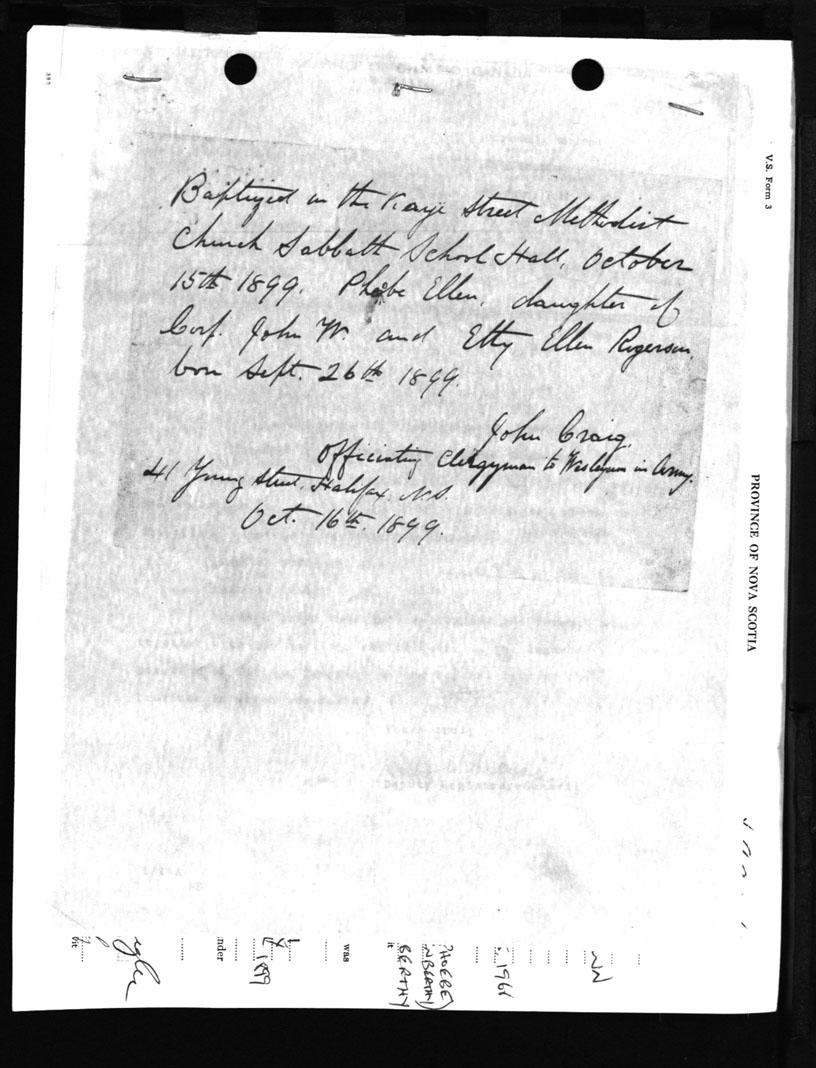 Baptized in the Kaye Street Methodist
Church Sabbath School Hall, October
15th 1899. Phebe Ellen, daughter of
Corp. John W. and Etty Ellen Rogerson,
born Sept. 26th 1899.
John Craig,
Officiating Clergyman to Wesleyans in Army.
41 Young Street, Halifax, N.S.
Oct. 16th. 1899.
V.S. Form 3
PROVINCE OF NOVA SCOTIA
1961
PHOEBE
BERTHY
it
was
1899